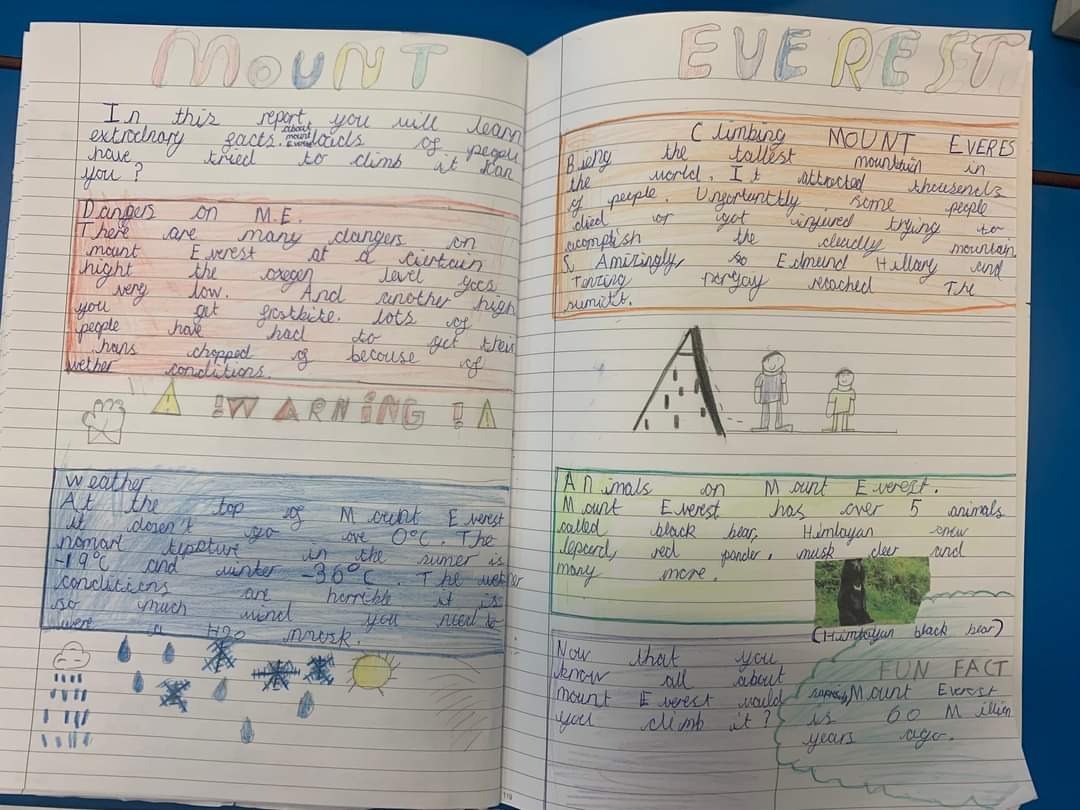 MOUNT EVEREST
In this report you will learn
extrodnary facts. about mount Everest loads of people
have tried to climb it can
you?
Dangers on M.E.
There are many dangers on
mount Everest at a ciertain
hight the oxegen level goes
very low. And another high
you get frostbite. lots of
people have had to get their
hans chopped of becouse of
wether conditions.
!WARNING!
Weather
At the top of Mount Everest
it doren't go ove 0°C. The
nomart tipoture in the sumer is
-19°C and winter -36°C. The wether
conditions are horrible it is
so much wind you need to
were a H2O mask.
Climbing MOUNT EVERES
Bieng the tallest mountain in
the world, It attracted thousends
of people. Unfortuntly some people
died or got injured trying to
acomplish the deadly mountain
Amizingly so Edmund Hillary and
Tenzing Norgay reached The
sumitt.
Animals on Mount Everest.
Mount Everest has over 5 animals
called black bear, Himlayan snew
lepard, red pander, musk deer and
many more.
(Himlayan black bear)
Now that you
know all about
mount Everest would
you climb it?
FUN FACT
Mount Everest
is 60 Million
years ago.